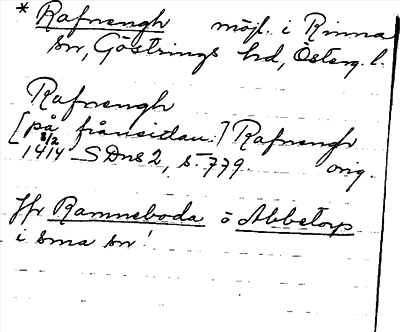 * Rafnængh möjl. i Rinna
sn, Göstrings hd, Österg. l.
Rafnængh
[på frånsidan:] Rafnængh
8/2 1414 SDns 2, s. 779. orig.
Jfr Ramneboda o Abbetorp
i sma sn!